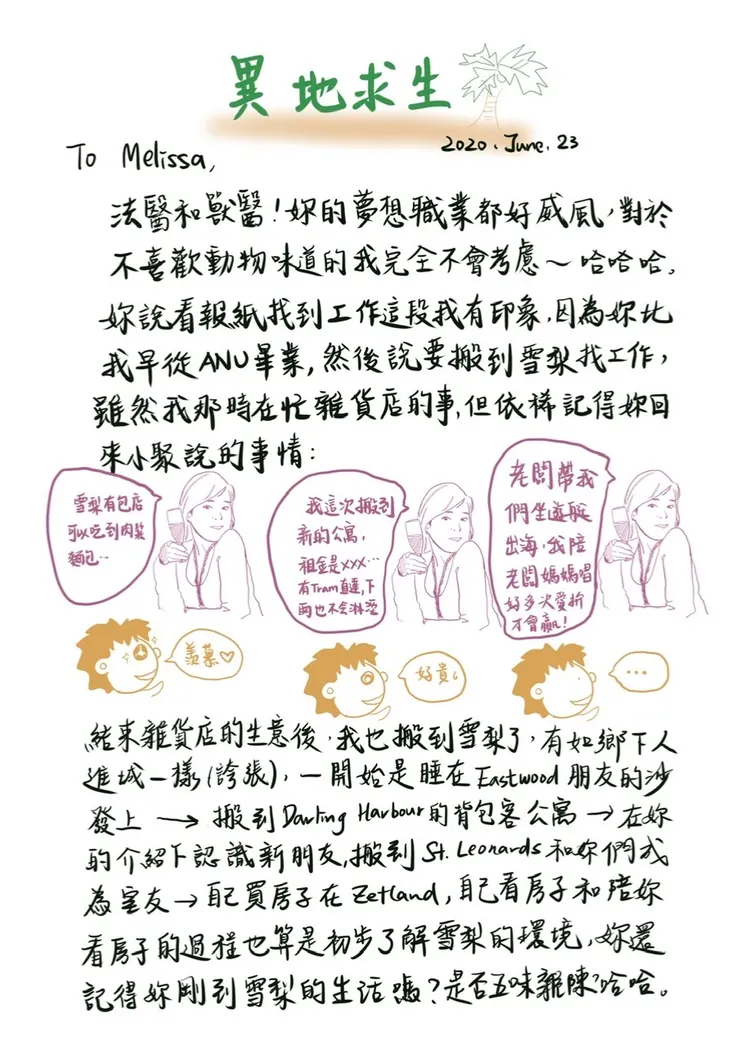 異地求生
2020. June. 23
To Melissa,
法醫和獸醫！妳的夢想職業都好威風，對於
不喜歡動物味道的我完全不會考慮～哈哈哈。
妳說看報紙找到工作這段我有印象，因為妳比
我早從ANU畢業，然後說要搬到雪梨找工作，
雖然我那時在忙雜貨店的事，但依稀記得妳回
來小聚說的事情：
雪梨有包店
可以吃到肉鬆
麵包…
我這次搬到
新的公寓，
租金是xxx…
有Tram直達，下
雨也不会淋溼
老闆帶我
們坐遊艇
出海，我陪
老闆媽媽唱
好多次愛拚
才會贏！
羨慕♡
好貴
...
結束雜貨店的生意後，我也搬到雪梨了，有如鄉下人
進城一樣(誇張)，一開始是睡在Eastwood朋友的沙
發上→搬到Darling Harbour的背包客公寓→在妳
的介紹下認識新朋友，搬到St. Leonards和妳們成
為室友→自己買房子在Zetland，自己看房子和陪妳
看房子的過程也算是初步了解雪梨的環境，妳還
記得妳剛到雪梨的生活嗎？是否五味雜陳？哈哈。